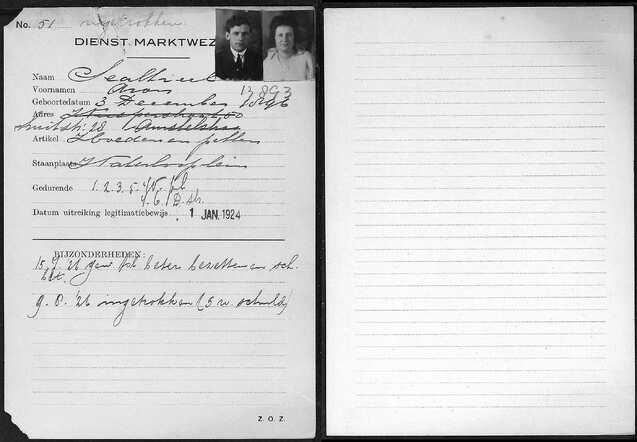 No. 51 ingetrokken
DIENST MARKTWEZ
Naam
Voornamen Aron 12893
Geboortedatum 3 December 1896
Adres
28 Amstelstraat
Artikel Hoeden en petten
Staanplaats Waterlooplein
Gedurende 1. 2. 3. 5.
Datum uitreiking legitimatiebewijs 1 JAN. 1924
BIJZONDERHEDEN:
15. 7. '26 gew. beter bezetten en
9. 8. '26 ingetrokken (5 w schuld)
Z. O. Z.